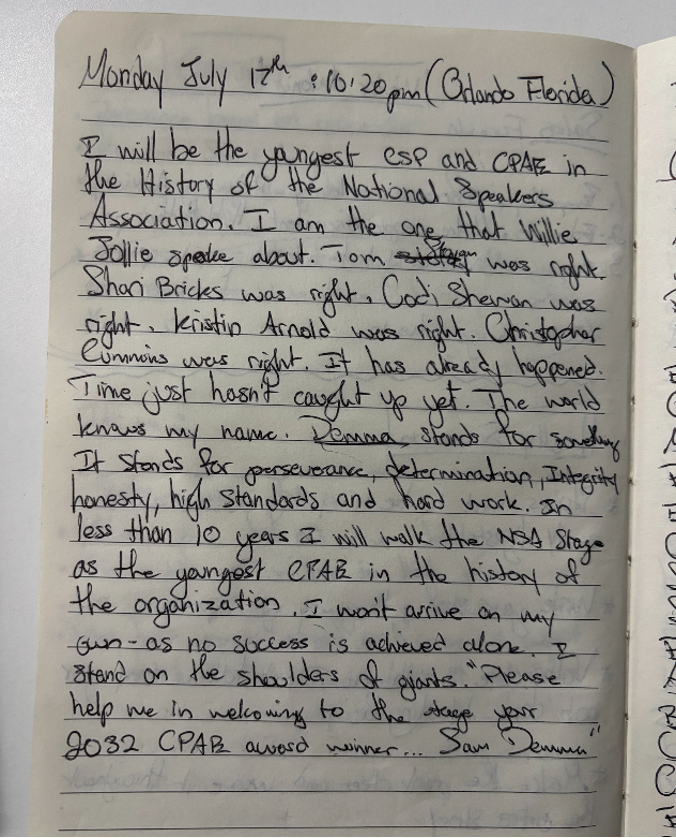 Monday July 17th : 10:20pm (Orlando Florida)
I will be the youngest CSP and CPAE in
the History of the National Speakers
Association. I am the one that Willie
Jollie speake about. Tom was right.
Shari Bricks was right. Codi Shewan was
right. Kristin Arnold was right. Christopher
Cummins was right. It has already happened.
Time just hasn't caught up yet. The world
knows my name. Demma stands for something
It stands for perseverance, determination, Integrity
honesty, high standards and hard work. In
less than 10 years I will walk the NSA Stage
as the youngest CPAE in the history of
the organization. I won't arrive on my
own - as no success is achieved alone. I
stand on the shoulders of giants. "Please
help me in welcoming to the stage your
2032 CPAE award winner... Sam Demma"